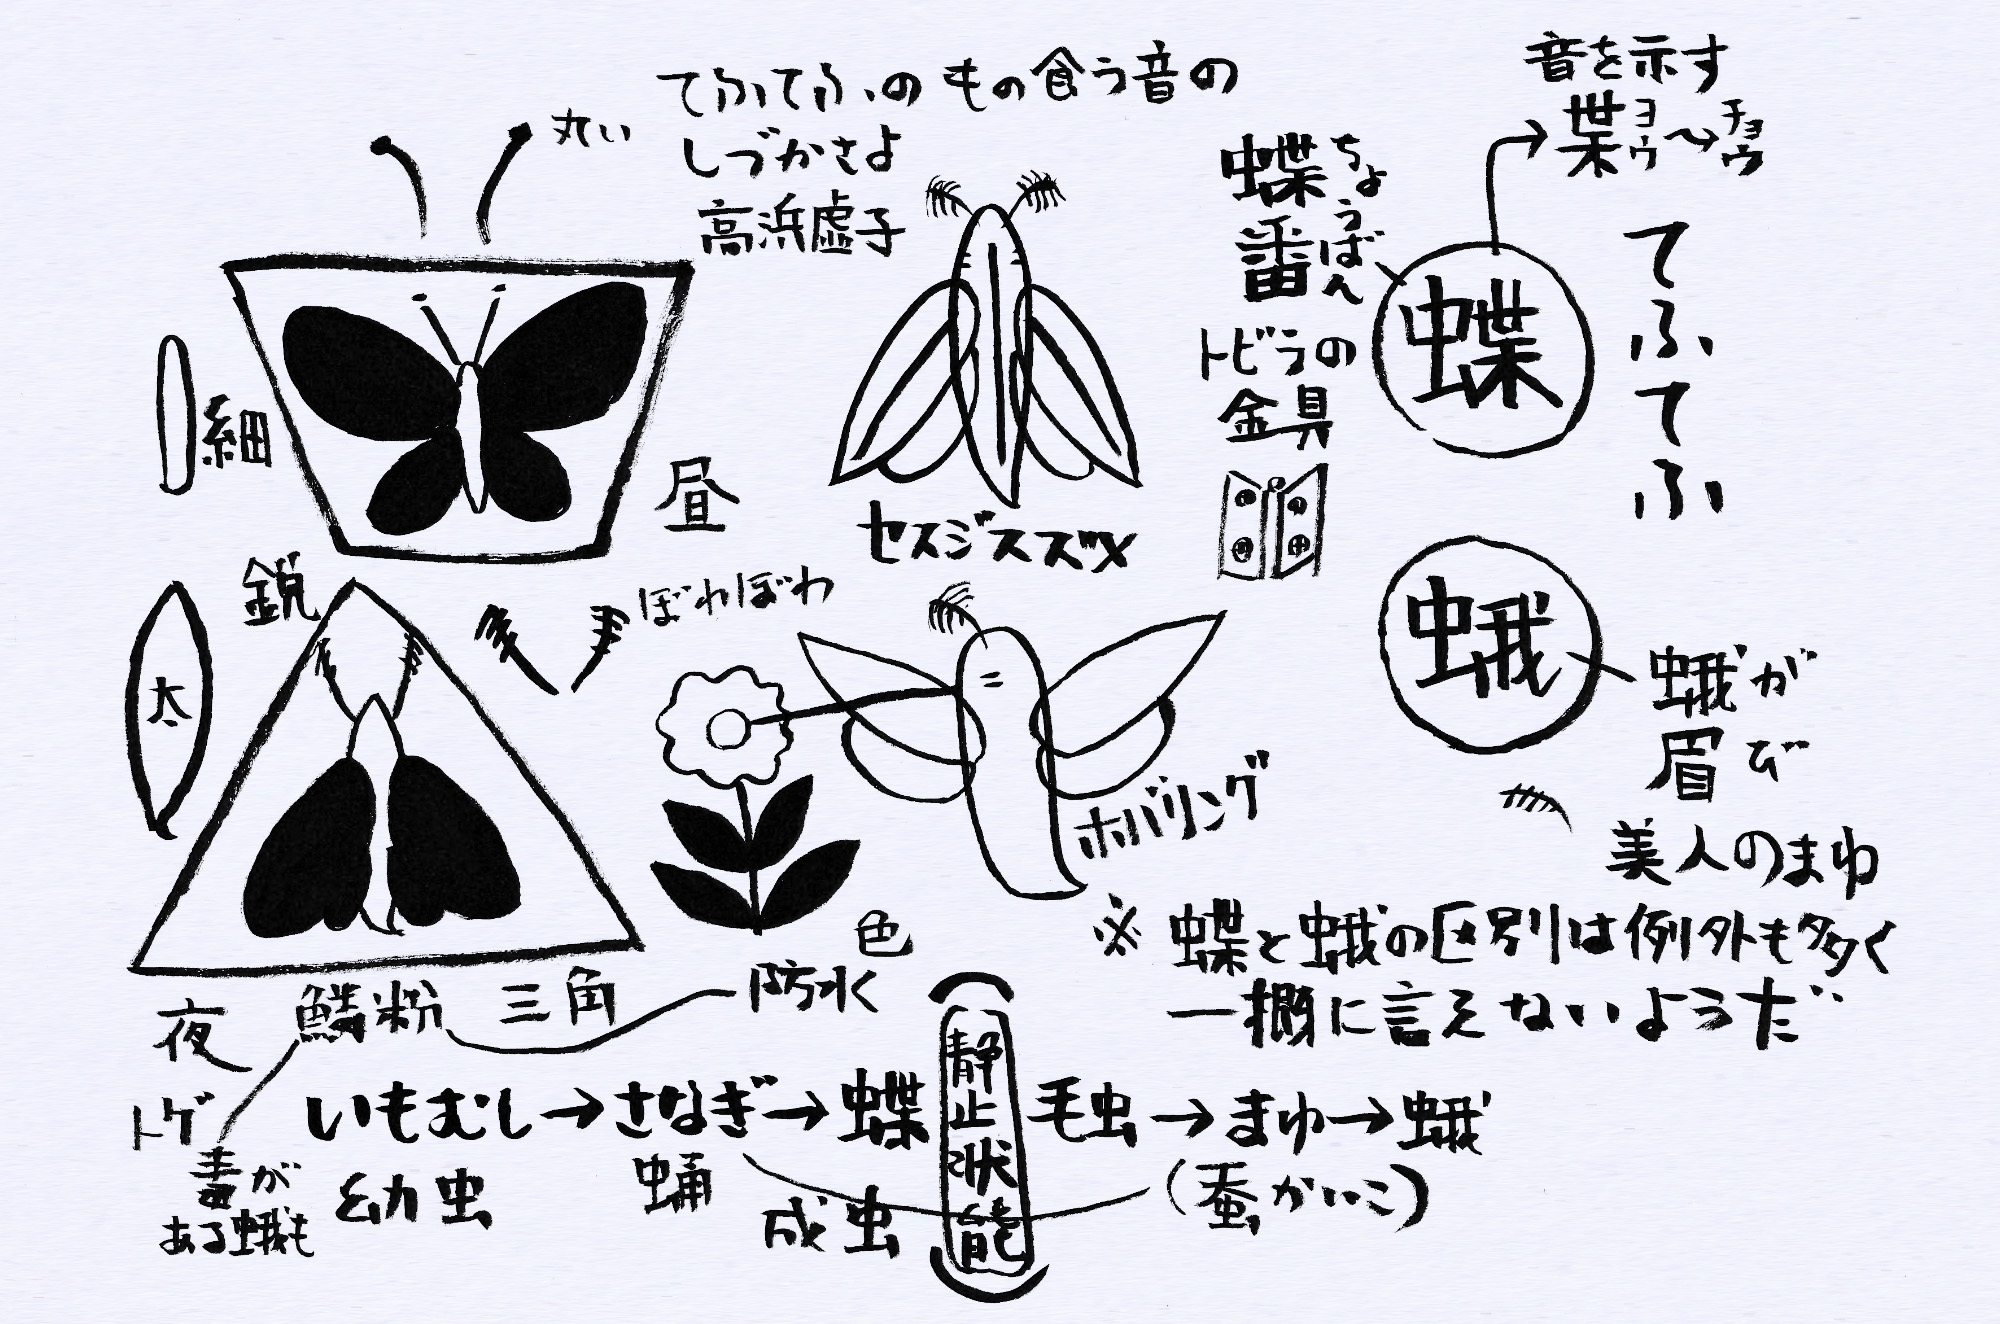 てふてふの もの食う音の
しづかさよ
高浜虚子
丸い
細
昼
セスジスズメ
蝶番
ちょうばん
トビラの
金具
音を示す
枼
ヨウ
チョウ
蝶
てふてふ
蛾
蛾が
眉び
美人のまゆ
鋭
太
ぼわぼわ
ホバリング
色
夜
鱗粉
三角
防水
トゲ
毒が
ある蛾も
※ 蝶と蛾の区別は例外も多く
一概に言えないようだ
いもむし→さなぎ→蝶
幼虫
蛹
成虫
静止状態
毛虫→まゆ→蛾
(蚕かいこ)